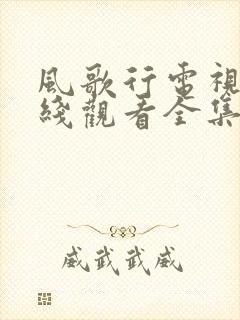 風歌行電視
綫觀看全集
威武武威